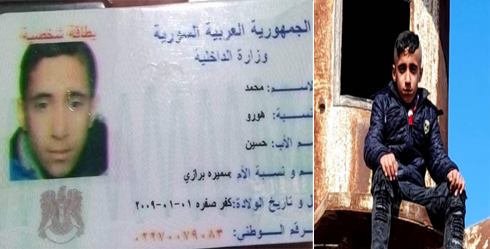 بطاقة شخصية
الجمهورية العربية السورية
وزارة الداخلية
ـاسم: محمد
ـنسبة: هورو
م الأب: حسين
م و نسبة الأم: سميره برازي
ل و تاريخ الولادة: كفر صفره ٠١-٠١-٢٠٠٩
رقم الوطني: ٠٢٢٧٠٠٧٩٠٨٣